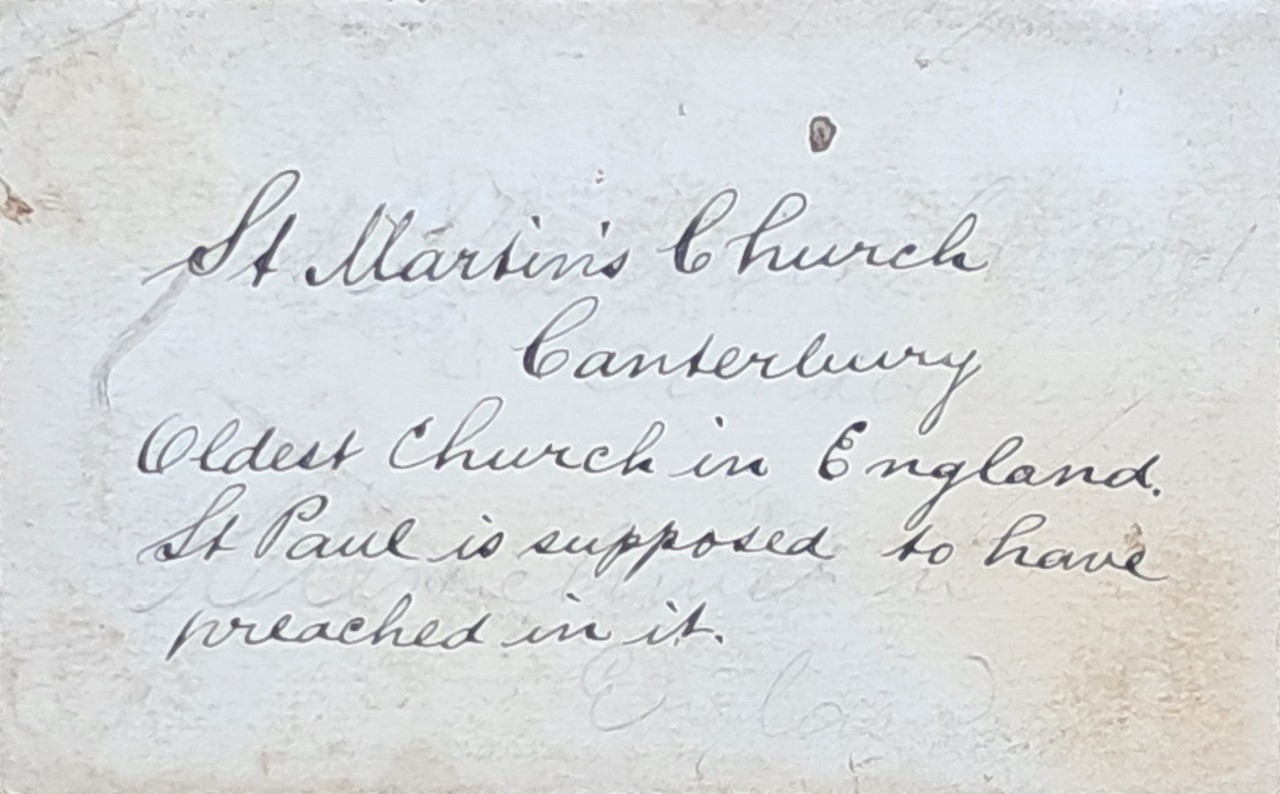 St Martin's Church
Canterbury
Oldest Church in England.
St Paul is supposed to have
preached in it.